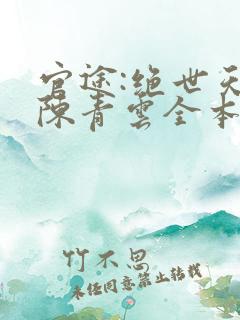 官途:绝世天
陈青云全本
竹不思
未经同意禁止转载